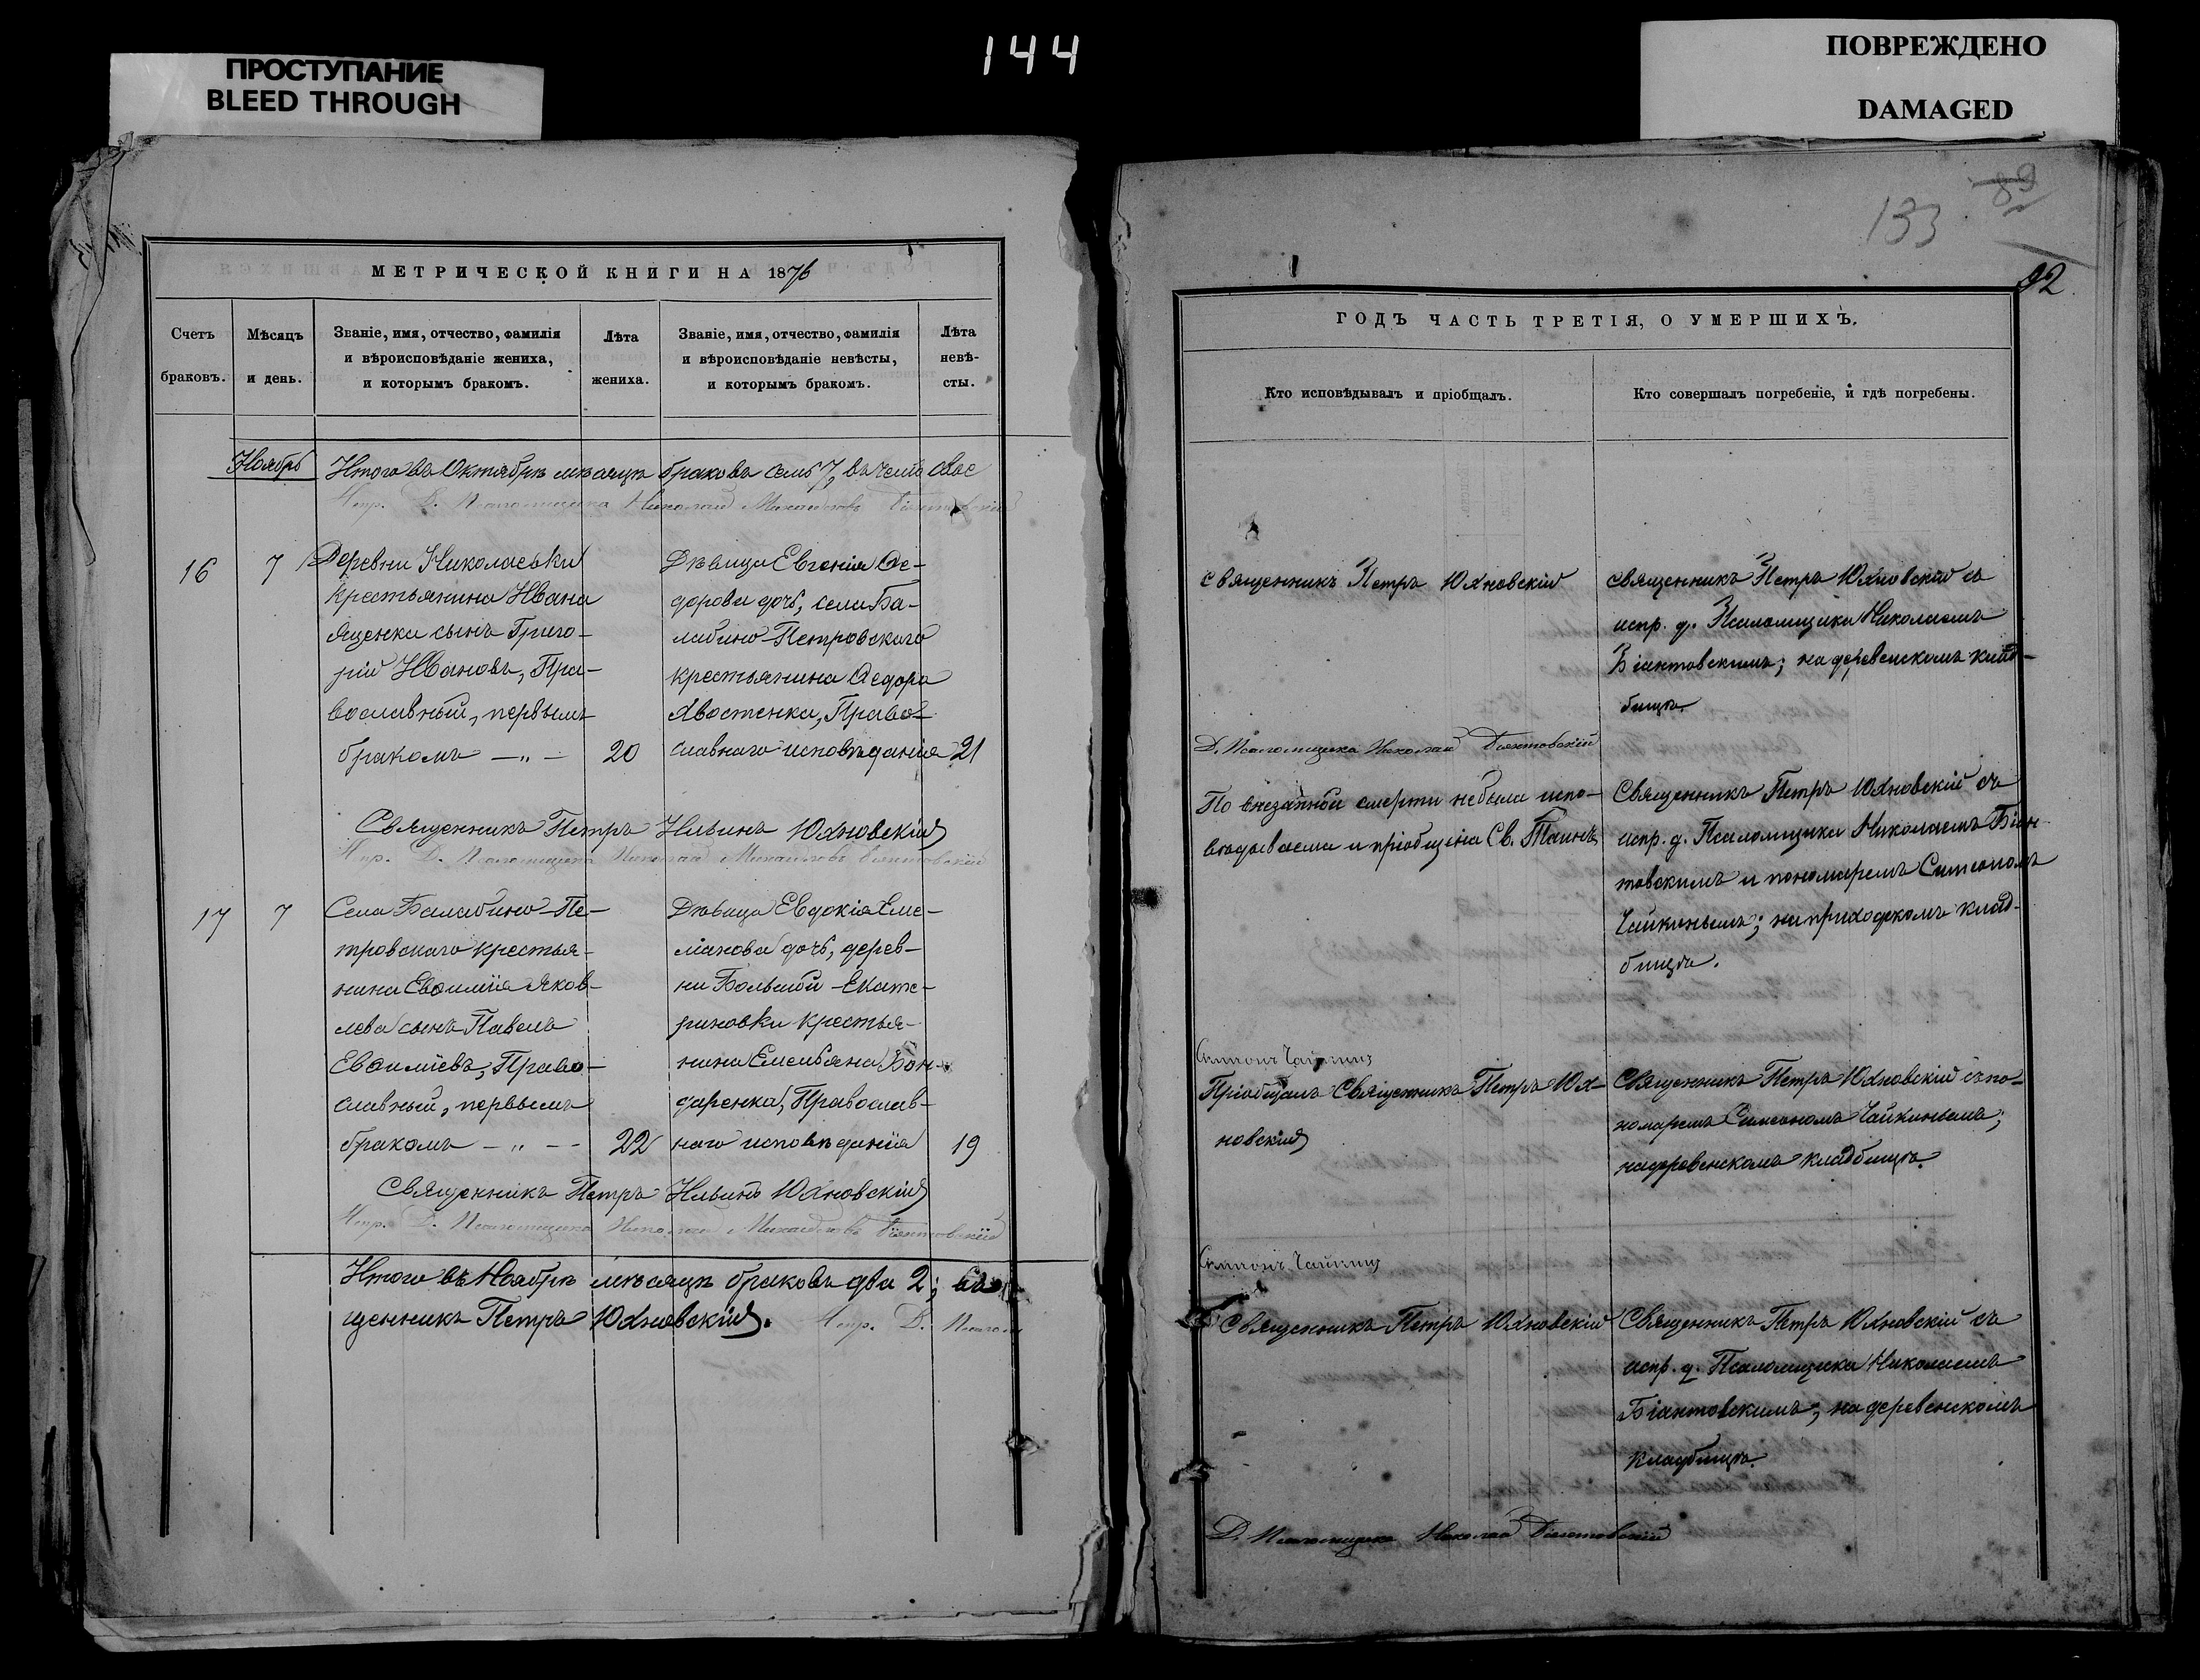 144
ПРОСТУПАНИЕ
BLEED THROUGH
ПОВРЕЖДЕНО
DAMAGED
МЕТРИЧЕСКОЙ КНИГИ НА 1876
Счетъ браковъ.
Мѣсяцъ и день.
Званіе, имя, отчество, фамилія
и вѣроисповѣданіе жениха,
и которымъ бракомъ.
Лѣта жениха.
Званіе, имя, отчество, фамилія
и вѣроисповѣданіе невѣсты,
и которымъ бракомъ.
Лѣта невѣ-
сты.
Ноябрь
Итого въ Октябрѣ мѣсяцѣ браковъ семь 7, въ чемъ
Испр. Д. Псаломщика Николай Михайловъ Біянтовскій
16
7
Деревни Николаевки
крестьянина Ивана
Ященка сынъ Григо-
рій Ивановъ, Пра-
вославный, первымъ
бракомъ — „ —
20
Дѣвица Евгенія Ѳе-
дорова дочь, села Ба-
лабино-Петровскаго
крестьянина Ѳедора
Хвостенка, Право-
славнаго исповѣданія
21
Священникъ Петръ Ильинъ Юхновскій
Испр. Д. Псаломщика Николай Михайловъ Біянтовскій
17
7
Села Балабино-Пе-
тровскаго крестья-
нина Евѳимія Яков-
лева сынъ Павелъ
Евѳиміевъ, Право-
славный, первымъ
бракомъ — „ — -
22
Дѣвица Евдокія Еме-
ліанова дочь, дерев-
ни Большой-Екате-
риновки крестья-
нина Емельяна Бон-
даренка, Православ-
наго исповѣданія
19
Священникъ Петръ Ильинъ Юхновскій
Испр. Д. Псаломщика Николай Михайловъ Біянтовскій
Итого въ Ноябрѣ мѣсяцѣ браковъ два 2; Свя
щенникъ Петръ Юхновскій. Испр. Д. Псалом
89
133
92
ГОДЪ ЧАСТЬ ТРЕТІЯ, О УМЕРШИХЪ.
Кто исповѣдывалъ и пріобщалъ.
Кто совершалъ погребеніе, и гдѣ погребены.
Священникъ Петръ Юхновскій
Священникъ Петръ Юхновскій съ
испр. д. Псаломщика Николаемъ
Біантовскимъ; на деревенскомъ клад-
бищѣ.
Д. Псаломщика Николай Біянтовскій
По внезапной смерти небыла испо-
вѣдываема и пріобщена Св. Таинъ
Священникъ Петръ Юхновскій съ
испр. д. Псаломщика Николаемъ Біан-
товскимъ и пономаремъ Симеономъ
Чайкинымъ; на приходскомъ клад-
бищѣ.
Симеонъ Чайкинъ
Пріобщалъ Священникъ Петръ Юх-
новскій
Священникъ Петръ Юхновскій съ по-
номаремъ Симеономъ Чайкинымъ;
на деревенскомъ кладбищѣ.
Симеонъ Чайкинъ
Священникъ Петръ Юхновскій
Священникъ Петръ Юхновскій съ
испр. д. Псаломщика Николаемъ
Біантовскимъ; на деревенскомъ
кладбищѣ.
Д. Псаломщика Николай Біянтовскій